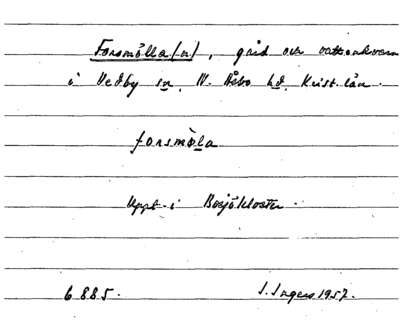 Forsmölla(n), gård och vattenkvarn
i Vedby sn, N. Åsbo hd. Krist. län.
forsmöla
Uppt. i Bosjökloster.
6885. I. Ingers 1957.